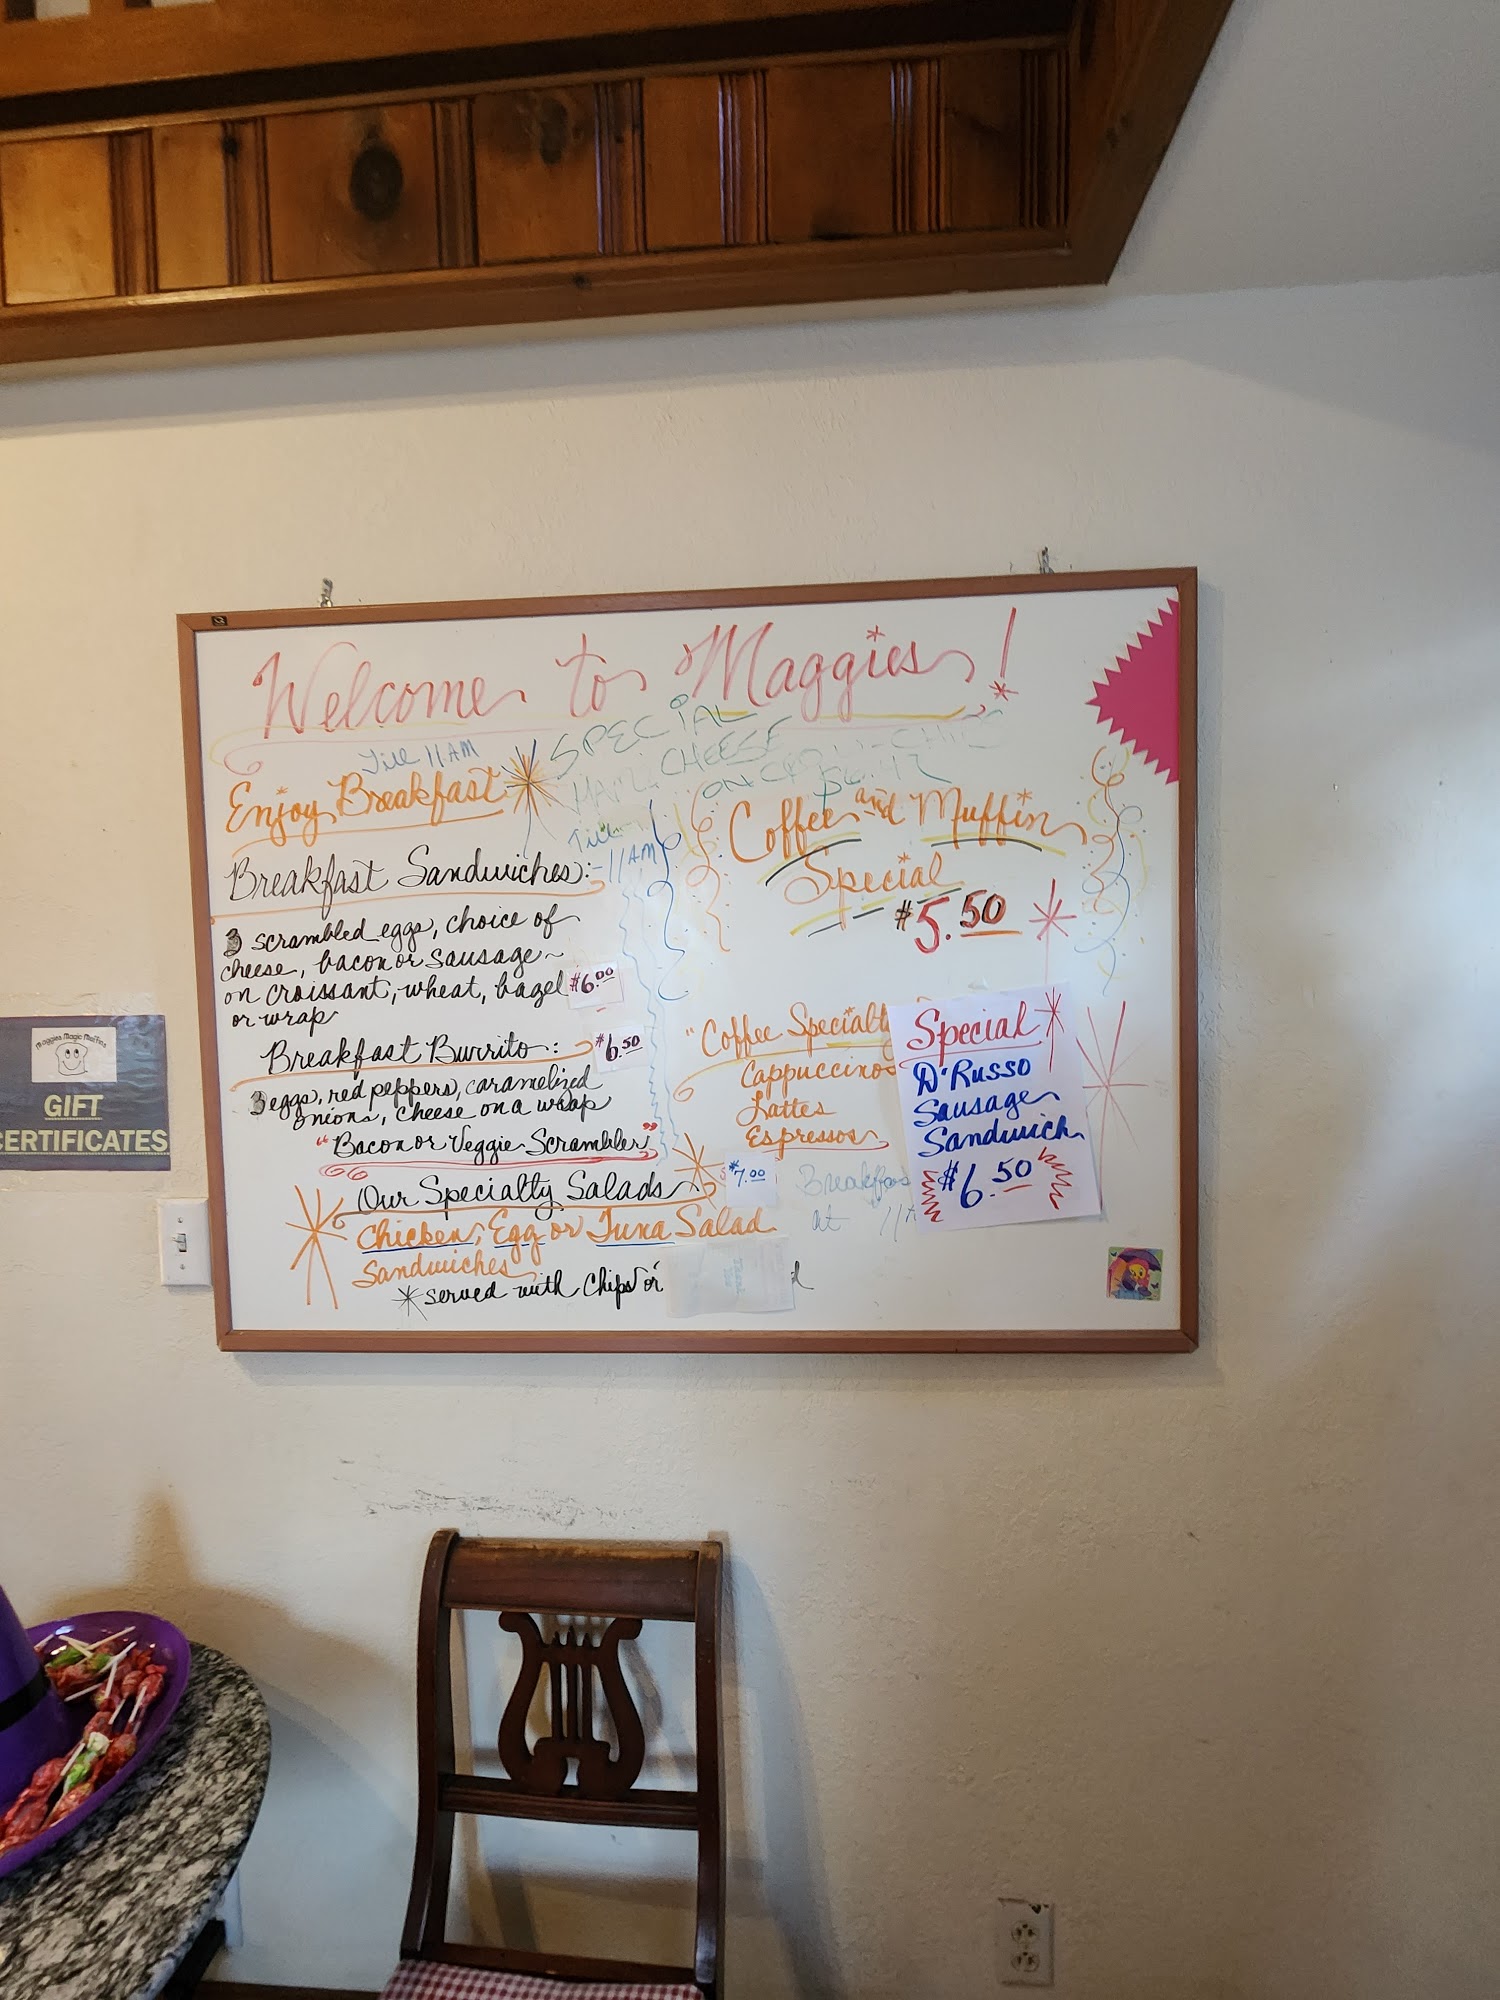 Welcome to Maggies!
Till 11 AM
Enjoy Breakfast
SPECIAL
HAM & CHEESE
ON
Till
11 AM
Breakfast Sandwiches:
3 scrambled eggs, choice of
cheese, bacon or sausage
on croissant, wheat, bagel $6.00
or wrap
Breakfast Burrito: $6.50
3 eggs, red peppers, caramelized
onions, cheese on a wrap
"Bacon or Veggie Scrambler"
Our Specialty Salads $7.00
Chicken, Egg or Tuna Salad
Sandwiches
*served with Chips or
Coffee and Muffin
Special
$5.50
"Coffee Specialty
Cappuccinos
Lattes
Espressos
Breakfas
at 11
Special
D'Russo
Sausage
Sandwich
$6.50
Maggies Magic Muffins
GIFT
CERTIFICATES